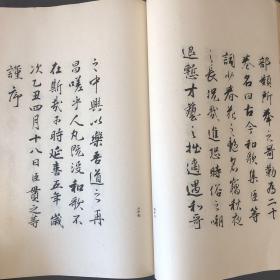 部類所奉之哥勒為二十
卷名曰古今和歌集臣等
詞少春花之艷名竊秋夜
之長況哉進恐時俗之嘲
退慙才藝之拙適遇和哥
之中興以樂吾道之再
昌嗟乎人丸既没和歌不
在斯哉于時延喜五年歲
次乙丑四月十八日臣貫之等
謹序